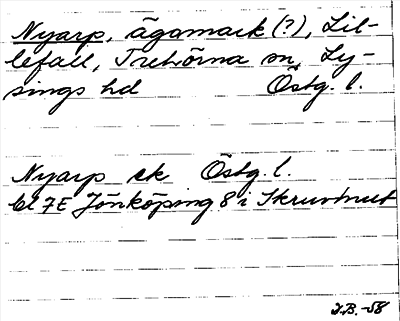 Nyarp, ägomark (?), Lil-
lefall, Trehörna sn, Ly-
sings hd Östg. l.
Nyarp ek Östg. l.
bl 7E Jönköping 8 i Skruvhult
I.B. -58